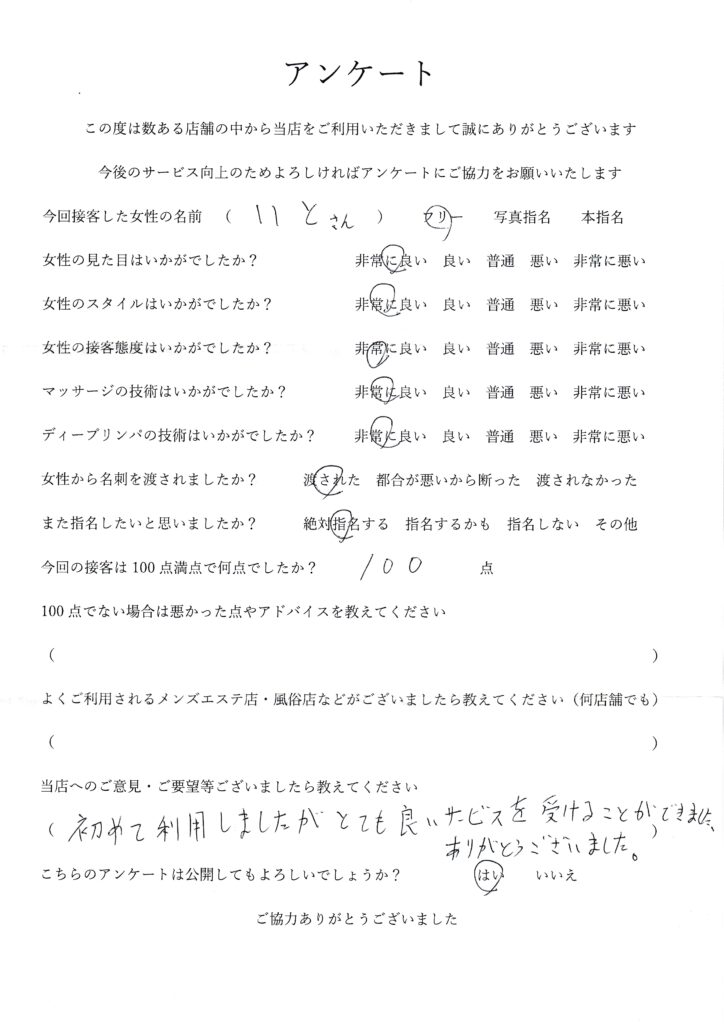 アンケート
この度は数ある店舗の中から当店をご利用いただきまして誠にありがとうございます
今後のサービス向上のためよろしければアンケートにご協力をお願いいたします
今回接客した女性の名前 ( いと さん ) フリー 写真指名 本指名
女性の見た目はいかがでしたか? 非常に良い 良い 普通 悪い 非常に悪い
女性のスタイルはいかがでしたか? 非常に良い 良い 普通 悪い 非常に悪い
女性の接客態度はいかがでしたか? 非常に良い 良い 普通 悪い 非常に悪い
マッサージの技術はいかがでしたか? 非常に良い 良い 普通 悪い 非常に悪い
ディープリンパの技術はいかがでしたか? 非常に良い 良い 普通 悪い 非常に悪い
女性から名刺を渡されましたか? 渡された 都合が悪いから断った 渡されなかった
また指名したいと思いましたか? 絶対指名する 指名するかも 指名しない その他
今回の接客は100点満点で何点でしたか? 100 点
100点でない場合は悪かった点やアドバイスを教えてください
( )
よくご利用されるメンズエステ店・風俗店などがございましたら教えてください(何店舗でも)
( )
当店へのご意見・ご要望等ございましたら教えてください
( 初めて利用しましたがとても良いサービスを受けることができました、
ありがとうございました。 )
こちらのアンケートは公開してもよろしいでしょうか? はい いいえ
ご協力ありがとうございました